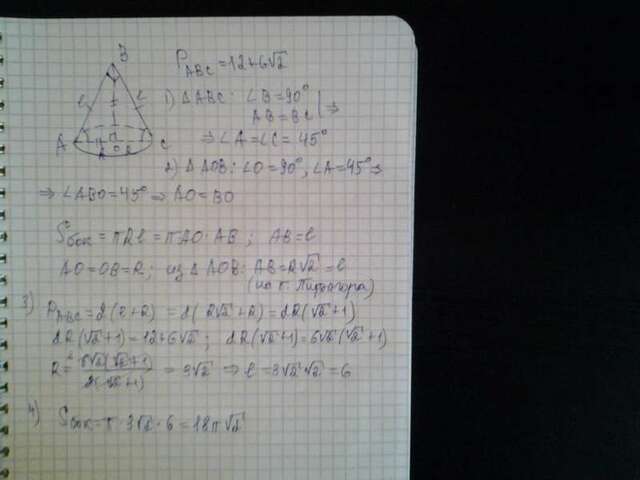 B
P_ABC = 12+6√2
1) △ABC: ∠B = 90°
AB = BC | ⇒
⇒ ∠A = ∠C = 45°
A C
O R
2) △AOB: ∠O = 90°, ∠A = 45° ⇒
⇒ ∠ABO = 45° ⇒ AO = BO
S бок = πRl = πAO·AB; AB = l
AO = OB = R; из △AOB: AB = R√2 = l
(по т. Пифагора)
3) P_ABC = 2(l+R) = 2(R√2+R) = 2R(√2+1)
2R(√2+1) = 12+6√2; 2R(√2+1) = 6√2(√2+1)
R = 6√2(√2+1) / 2(√2+1) = 3√2 ⇒ l = 3√2·√2 = 6
4) S бок = π·3√2·6 = 18π√2